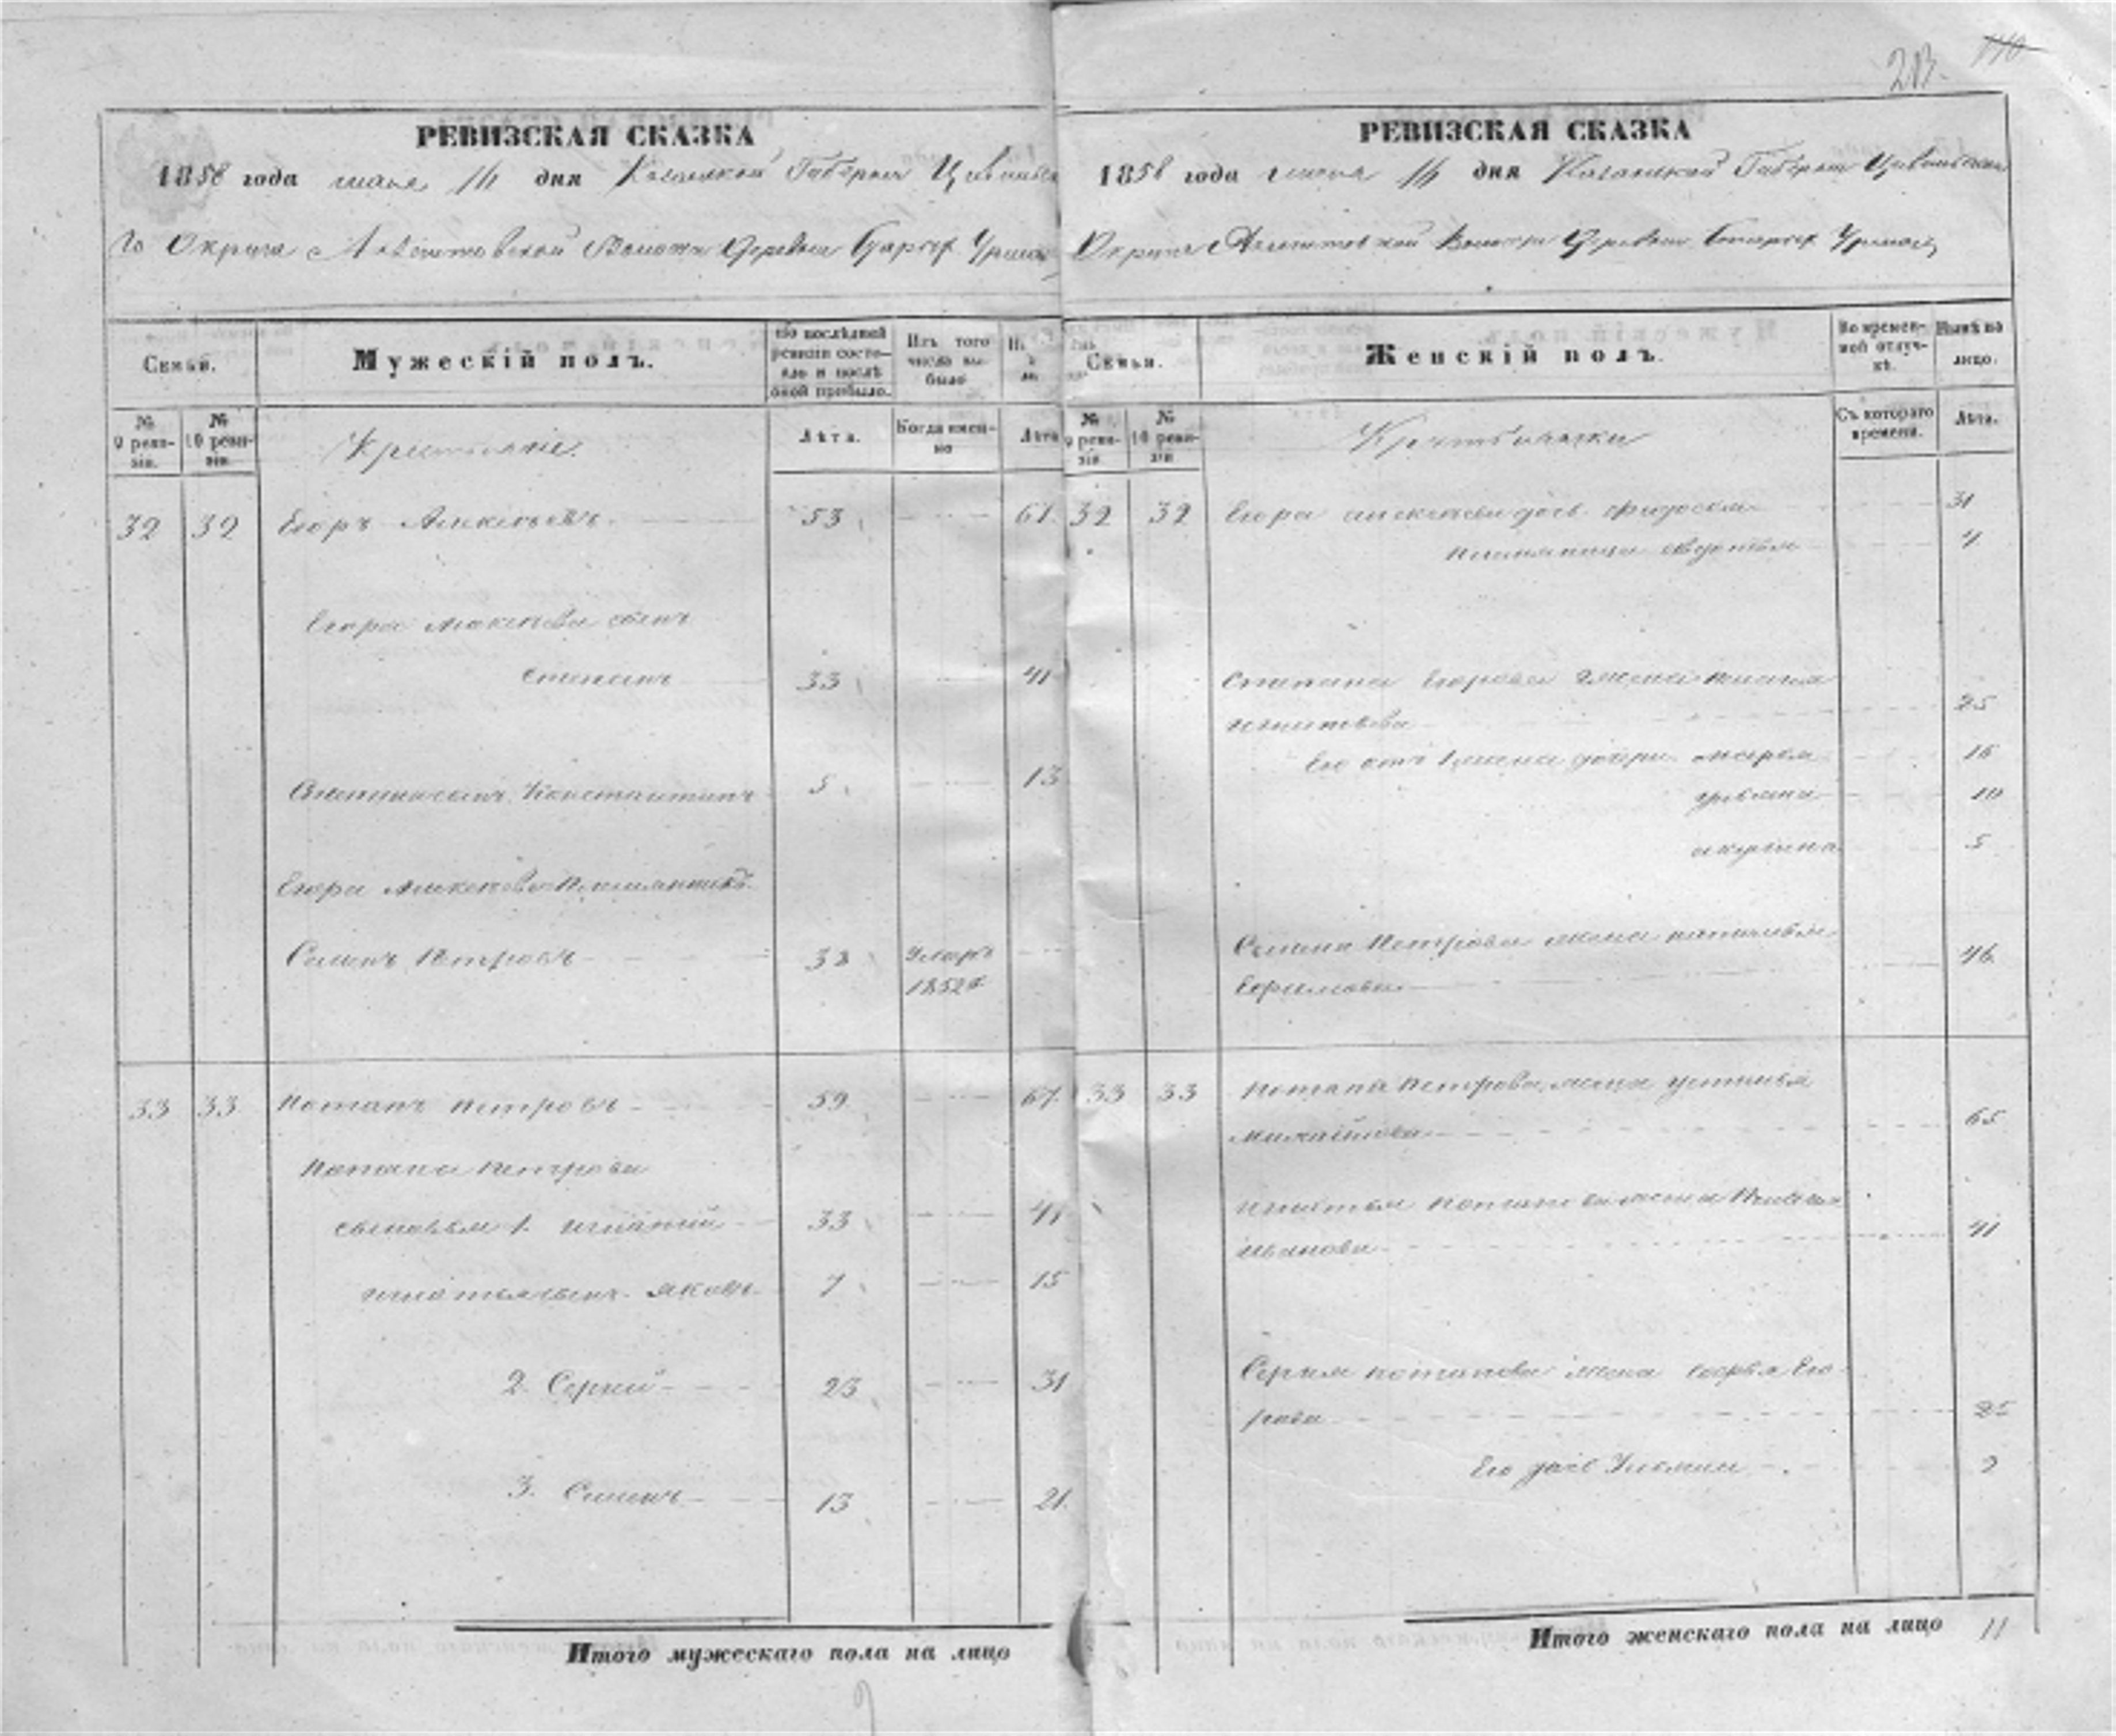 213. 110
РЕВИЗСКАЯ СКАЗКА
1858 года июня 16 дня Казанской Губернии Цивильска
го Округа Дер‌евни Старых Урмар
Семьи.
Мужескій полъ.
По послѣдней ревизіи состояло и послѣ оной прибыло.
Изъ того числа выбыло
№ 9 ревизіи.
№ 10 ревизіи.
Крестьяне.
Лѣта.
Когда именно
Лѣта
32 32 Егоръ Алексѣевъ. 53 61.
Егора Алексѣева сынъ
Степанъ 33 41
Степанинъ сынъ Константинъ 5 13
Егора Алексѣева племянникъ
Семенъ Петровъ 38 Умеръ
1852 г
33 33 Потапъ Петровъ 59 67.
Потапа Петрова
сыновья 1. Игнатій 33 41
Игнатья сынъ Яковъ 7 15
2. Сергей 23 31
3. Семенъ 13 21.
Итого мужескаго пола на лицо
РЕВИЗСКАЯ СКАЗКА
1858 года июня 16 дня Казанской Губерніи Цивильскаго
Округа Волости Деревни Старых Урмар
Семьи.
Женскій полъ.
Во временной отлучкѣ.
Нынѣ на лицо.
№ 9 ревизіи
№ 10 ревизіи
Крестьянки
Съ котораго времени.
Лѣта.
32 32 Егора Алексѣева дочь Федосья 31
племянница 4
Степана Егорова жена
Игнатьева 25
Его отъ 1 жены дочери Марья 16
Ульяна 10
Акулина 5
Семена Петрова жена Наталья
Ефимова 46
33 33 Потапа Петрова жена Устинья
Михайлова 65
Игнатья Потапова жена
Иванова 41
Сергея Потапова жена Софья Его-
рова 25
Его дочь Ульяна 2
Итого женскаго пола на лицо 11